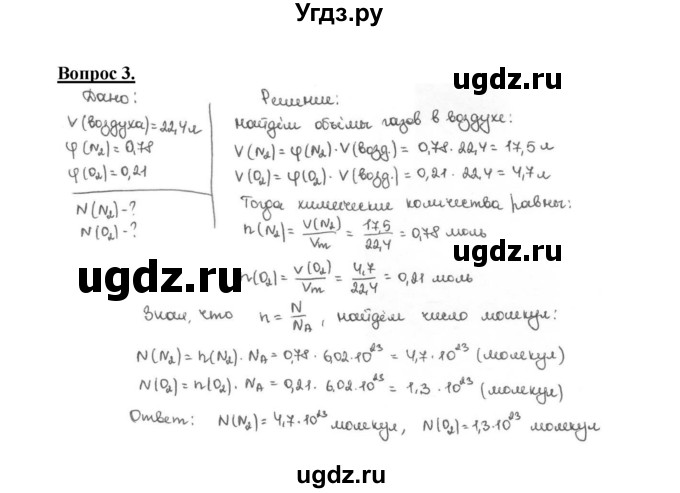 Угдз.ру
Вопрос 3.
Дано:
V(воздуха)=22,4л
φ(N₂)=0,78
φ(O₂)=0,21
N(N₂)-?
N(O₂)-?
Решение:
найдём объёмы газов в воздухе:
V(N₂)=φ(N₂)·V(возд.)=0,78·22,4=17,5л
V(O₂)=φ(O₂)·V(возд.)=0,21·22,4=4,7л
Тогда химические количества равны:
n(N₂)=V(N₂)/Vm=17,5/22,4=0,78 моль
n(O₂)=V(O₂)/Vm=4,7/22,4=0,21 моль
Зная, что n=N/NA, найдём число молекул:
N(N₂)=n(N₂)·NA=0,78·6,02·10²³=4,7·10²³ (молекул)
N(O₂)=n(O₂)·NA=0,21·6,02·10²³=1,3·10²³ (молекул)
Ответ: N(N₂)=4,7·10²³ молекул, N(O₂)=1,3·10²³ молекул
ugdz.ru
ugdz.ru
ugdz.ru
ugdz.ru
ugdz.ru
ugdz.ru
ugdz.ru